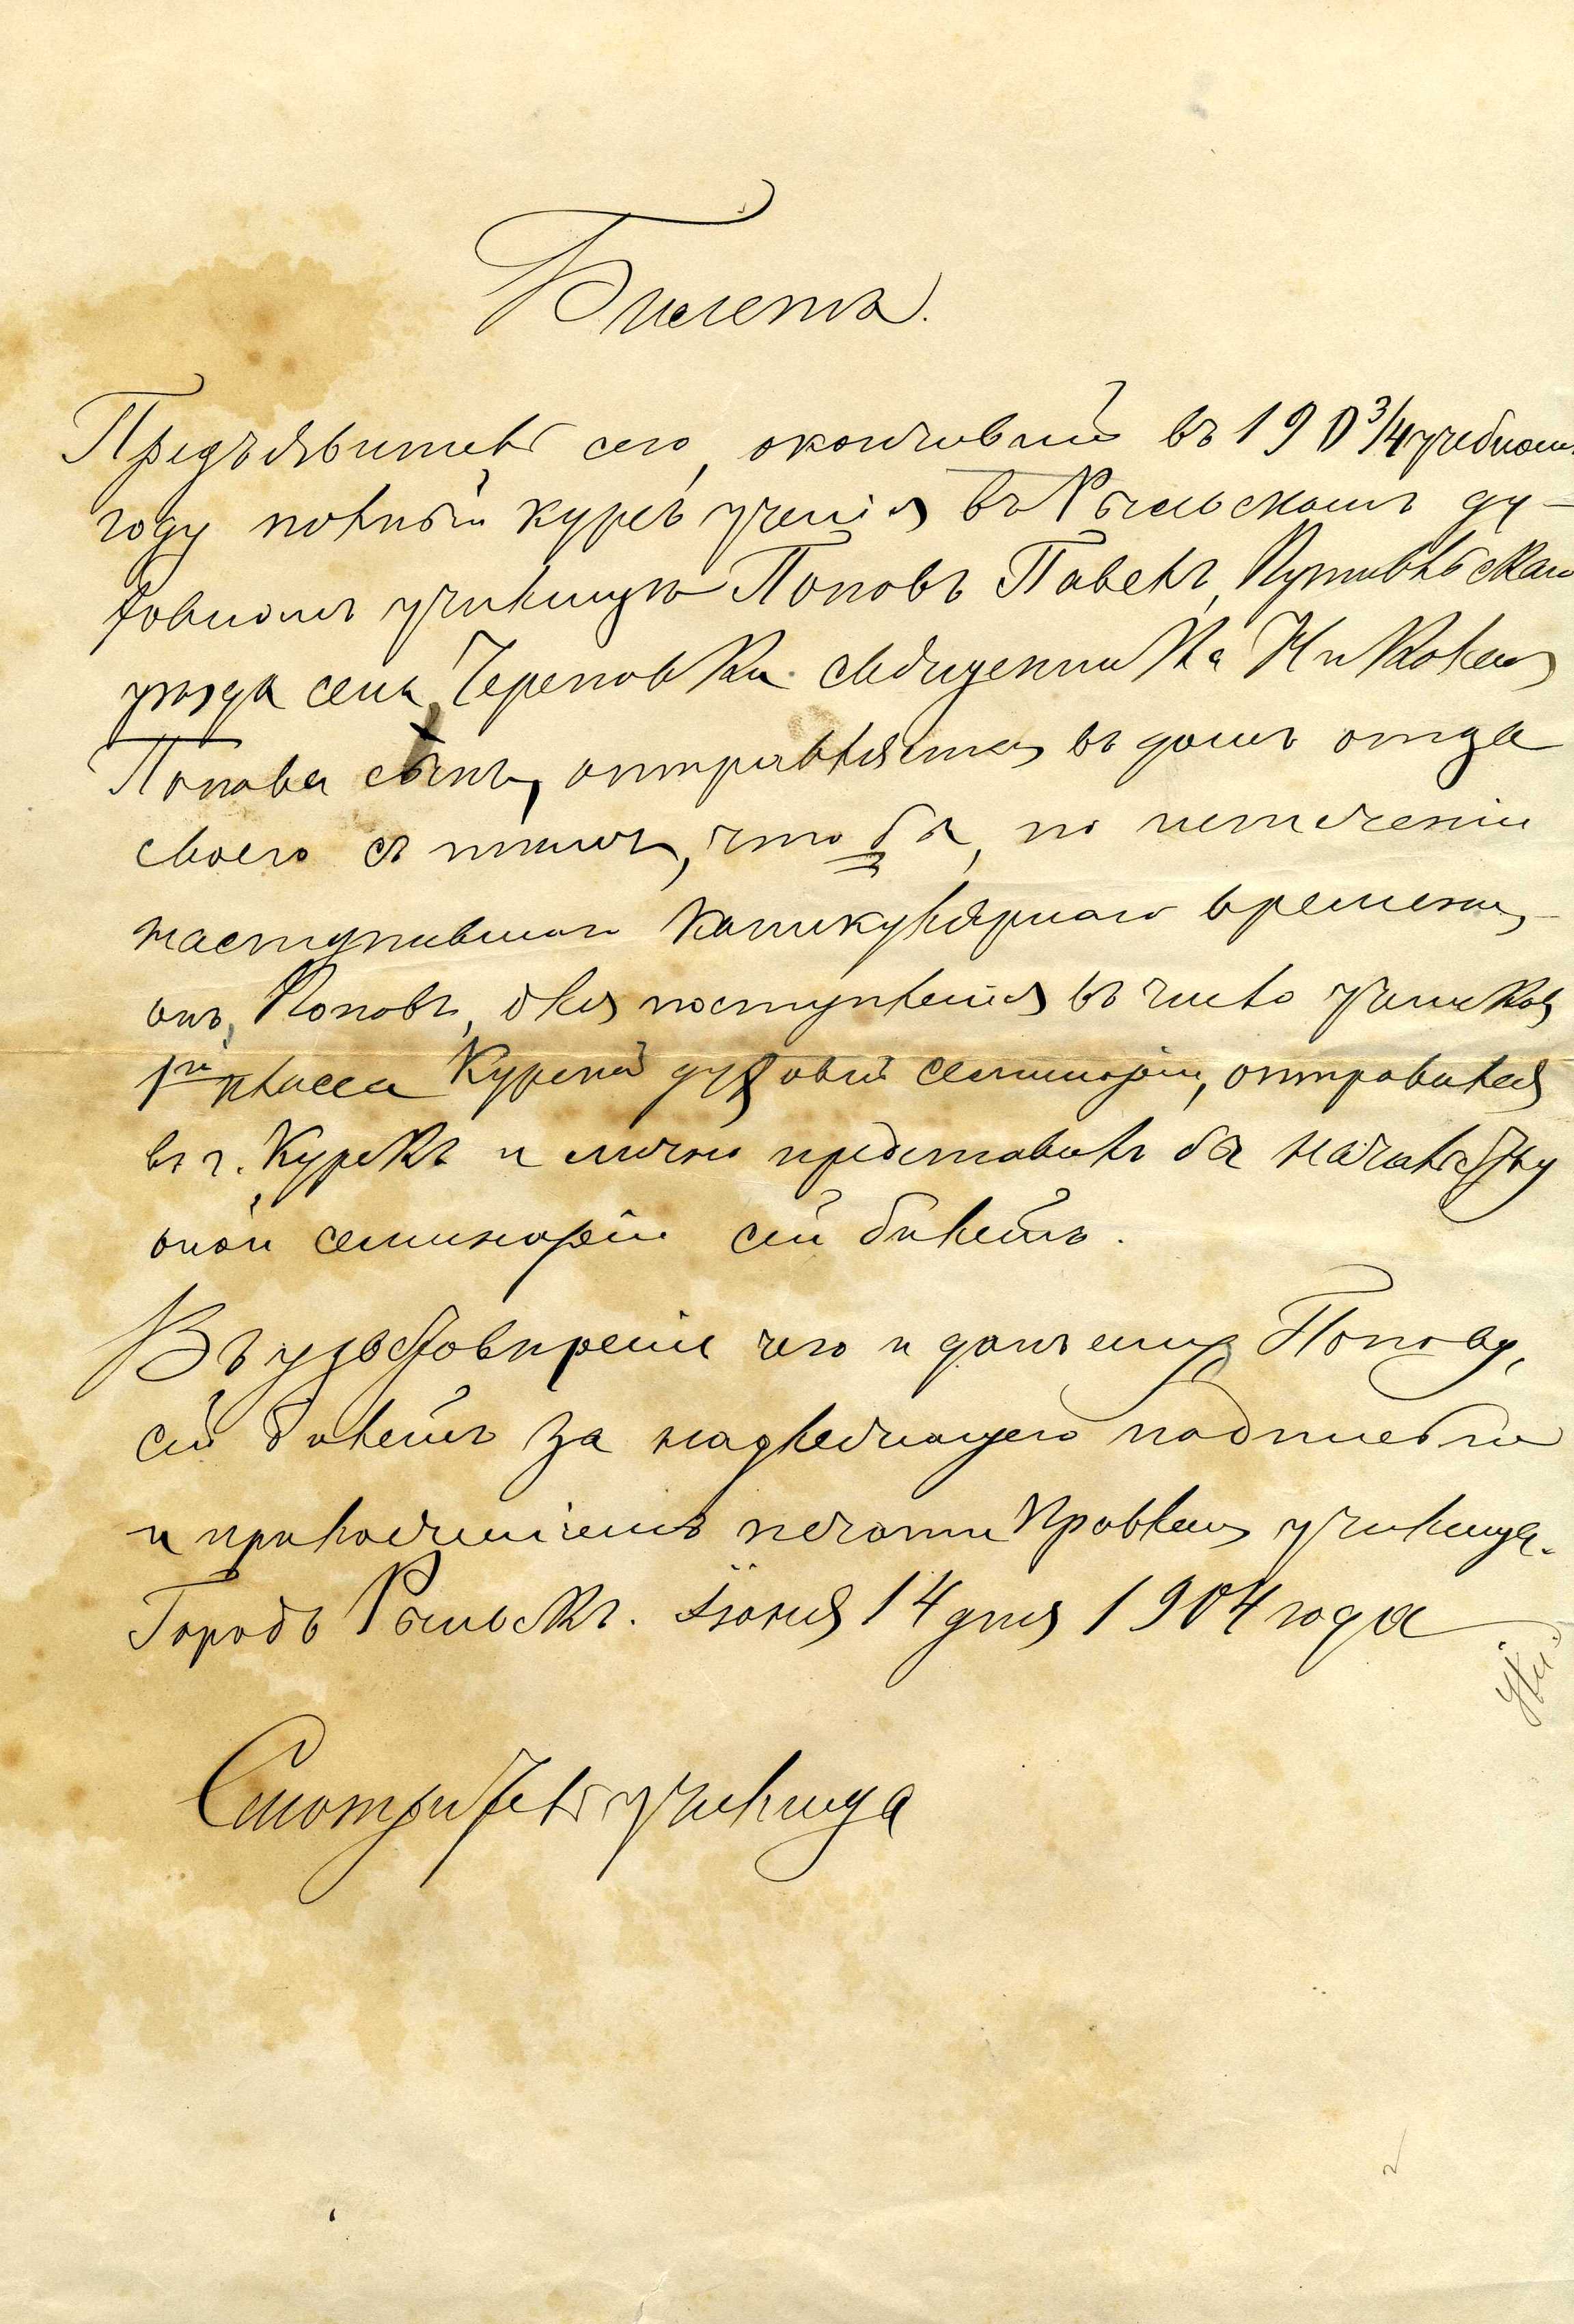 Билетъ.
Предъявитель сего, окончившій въ 190 3/4 учебномъ
году полный курсъ ученія въ Рыльскомъ ду-
ховномъ училищѣ Поповъ Павелъ, Путивльскаго
уѣзда села Череповки священника Николая
Попова сынъ, отправляется въ домъ отца
своего съ тѣмъ, что бы, по истеченіи
наступившаго каникулярнаго времени,
онъ, Поповъ, для поступленія въ число учениковъ
1го класса Курской духовной семинаріи, отправился
въ г. Курскъ и лично представилъ бы начальству
оной семинаріи сей билетъ.
Въ удостовѣреніе чего и данъ ему, Попову,
сей билетъ за надлежащею подписью
и приложеніемъ печати Правленія училища.
Городъ Рыльскъ. Іюня 14 дня 1904 года
Смотритель училища